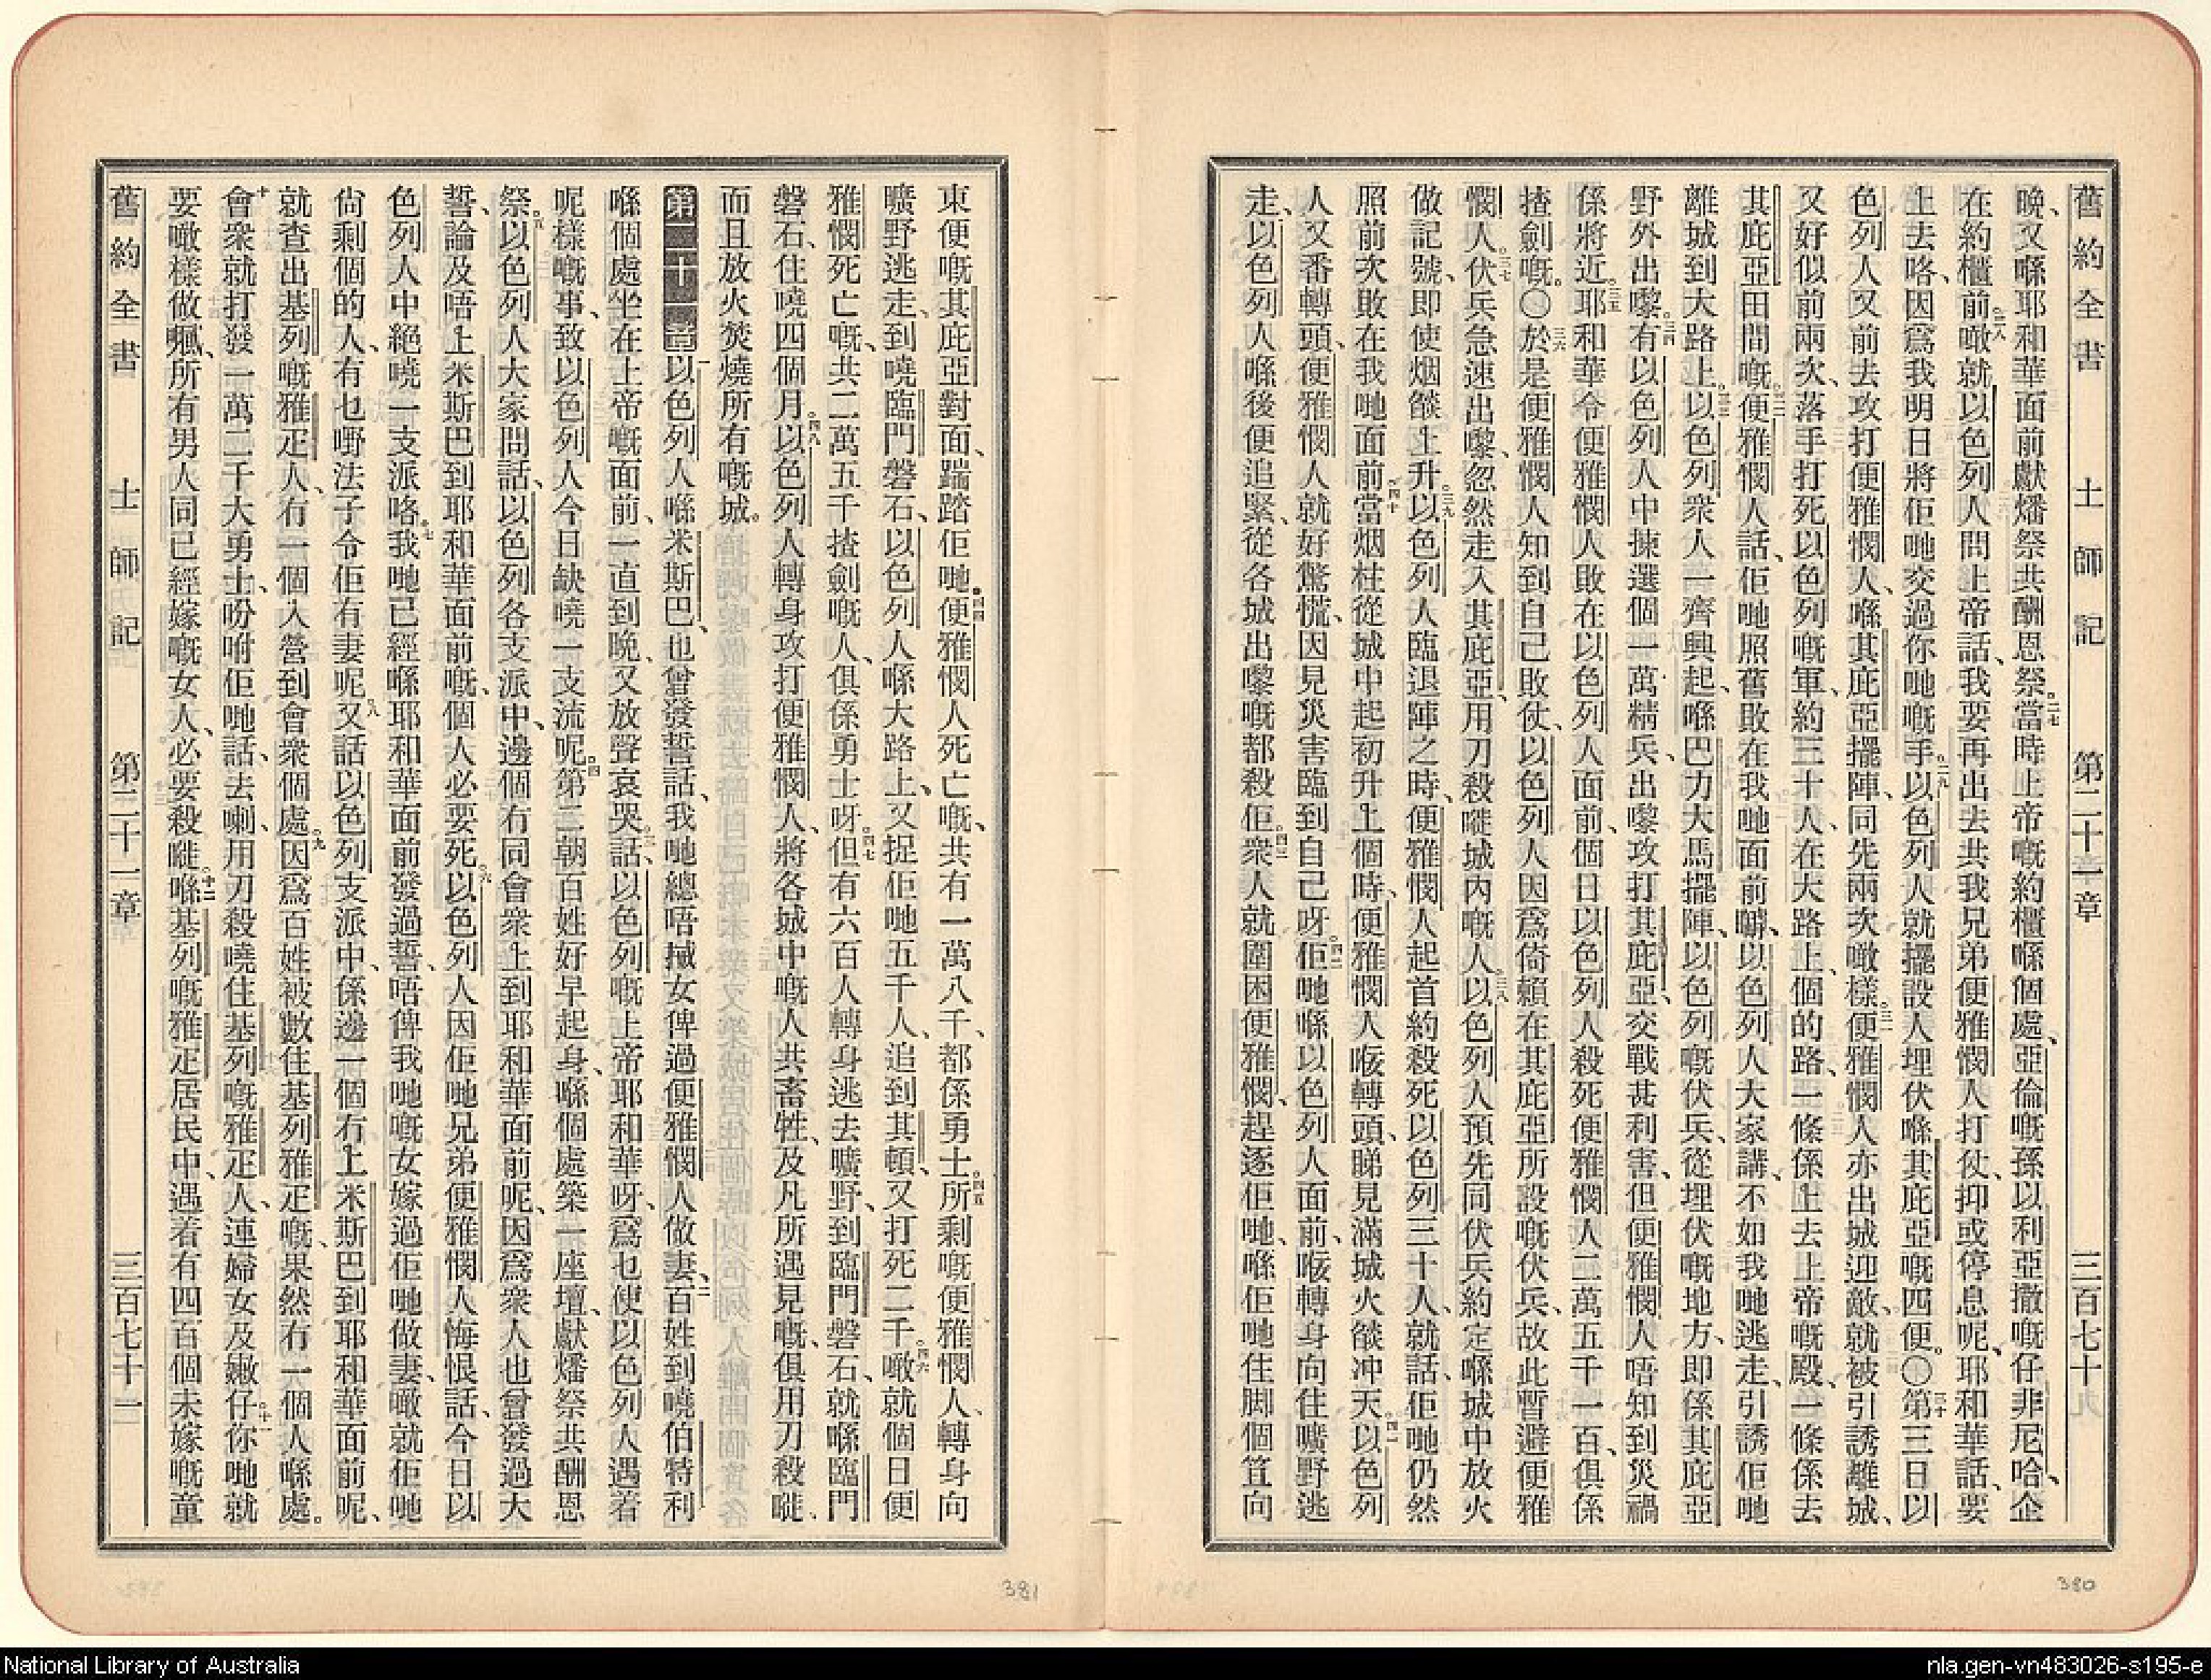 舊約全書 士師記 第二十章 三百七十
晚、又喺耶和華面前獻燔祭共酬恩祭。二七當時上帝嘅約櫃喺個處、亞倫嘅孫以利亞撒嘅仔非尼哈、企
在約櫃前。二八噉就以色列人問上帝話、我要再出去共我兄弟便雅憫人打仗、抑或停息呢、耶和華話、要
上去咯、因爲我明日將佢哋交過你哋嘅手。二九以色列人就擺設人埋伏喺其庇亞嘅四便。〇第三十三日以
色列人又前去攻打便雅憫人、喺其庇亞擺陣、同先兩次噉樣。三一便雅憫人亦出城迎敵、就被引誘離城、
又好似前兩次、落手打死以色列嘅軍、約三十人、在大路上、個的路、一條係上去上帝嘅殿、一條係去
其庇亞田間嘅。三二便雅憫人話、佢哋照舊敗在我哋面前嘞、以色列人大家講、不如我哋逃走、引誘佢哋
離城到大路上。三三以色列衆人一齊興起、喺巴力大馬擺陣、以色列嘅伏兵、從埋伏嘅地方、即係其庇亞
野外出嚟。三四有以色列人中揀選個一萬精兵、出嚟攻打其庇亞、交戰甚利害、但便雅憫人唔知到災禍
係將近。三五耶和華令便雅憫人敗在以色列人面前、個日以色列人殺死便雅憫人二萬五千一百、俱係
揸劍嘅。〇三六於是便雅憫人知到自己敗仗、以色列人因爲倚賴在其庇亞所設嘅伏兵、故此暫避便雅
憫人。三七伏兵急速出嚟、忽然走入其庇亞、用刀殺嘥城內嘅人。三八以色列人預先同伏兵約定喺城中放火
做記號、即使烟燄上升。三九以色列人臨退陣之時、便雅憫人起首約殺死以色列三十人、就話、佢哋仍然
照前次敗在我哋面前。四十當烟柱從城中起初升上個時、便雅憫人𠾴轉頭、睇見滿城火燄冲天。四一以色列
人又番轉頭、便雅憫人就好驚慌、因見災害臨到自己呀。四二佢哋喺以色列人面前、𠾴轉身向住曠野逃
走、以色列人喺後便追緊、從各城出嚟嘅都殺佢。四三衆人就圍困便雅憫、趕逐佢哋、喺佢哋住脚個笪向
東便嘅其庇亞對面、踹踏佢哋。四四便雅憫人死亡嘅、共有一萬八千、都係勇士。四五所剩嘅便雅憫人、轉身向
曠野逃走、到嘵臨門磐石、以色列人喺大路上、又捉佢哋五千人、追到其頓、又打死二千。四六噉就個日便
雅憫死亡嘅、共二萬五千揸劍嘅人、俱係勇士呀。四七但有六百人轉身逃去曠野、到臨門磐石、就喺臨門
磐石、住嘵四個月。四八以色列人轉身攻打便雅憫人、將各城中嘅人共畜牲、及凡所遇見嘅、俱用刀殺嘥、
而且放火焚燒所有嘅城。
第二十一章 一以色列人喺米斯巴、也曾發誓話、我哋總唔𢬿女俾過便雅憫人做妻。二百姓到嘵伯特利
喺個處坐在上帝嘅面前、一直到晚、又放聲哀哭。三話、以色列嘅上帝耶和華呀、爲乜使以色列人遇着
呢樣嘅事、致以色列人今日缺嘵一支流呢。四第二朝百姓好早起身、喺個處築一座壇、獻燔祭共酬恩
祭。五以色列人大家問話、以色列各支派中、邊個有同會衆上到耶和華面前呢、因爲衆人也曾發過大
誓、論及唔上米斯巴到耶和華面前嘅、個人必要死。六以色列人因佢哋兄弟便雅憫人悔恨話、今日以
色列人中絕嘵一支派咯。七我哋已經喺耶和華面前發過誓、唔俾我哋嘅女嫁過佢哋做妻、噉就佢哋
尙剩個的人、有乜嘢法子令佢有妻呢。八又話、以色列支派中、係邊一個冇上米斯巴到耶和華面前呢、
就查出基列嘅雅疋人、有一個入營到會衆個處。九因爲百姓被數、住基列雅疋嘅、果然冇一個人喺處。
十會衆就打發一萬二千大勇士、吩咐佢哋話、去喇、用刀殺嘵住基列嘅雅疋人、連婦女及嫩仔。十一你哋就
要噉樣做嘅、所有男人同已經嫁嘅女人、必要殺嘥。十二喺基列嘅雅疋居民中、遇着有四百個未嫁嘅童
舊約全書 士師記 第二十一章 三百七十一
380
381
National Library of Australia
nla.gen-vn483026-s195-e